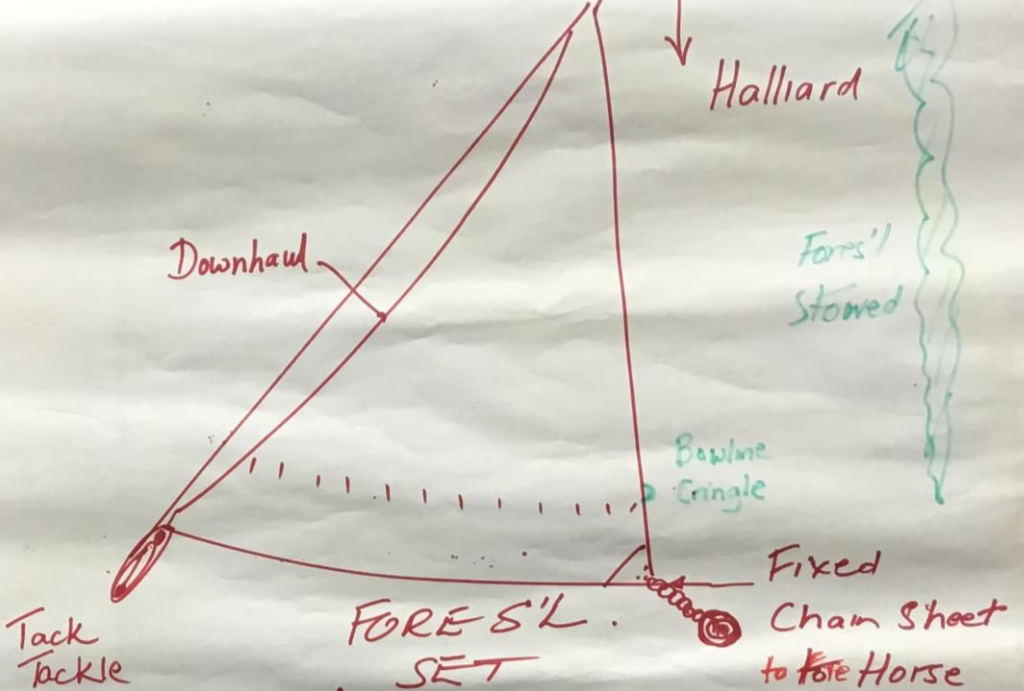 Halliard
Downhaul
Fores'l
Stowed
Bowline
Cringle
Fixed
Chain Sheet
to Fore Horse
Tack
Tackle
FORES'L.
SET